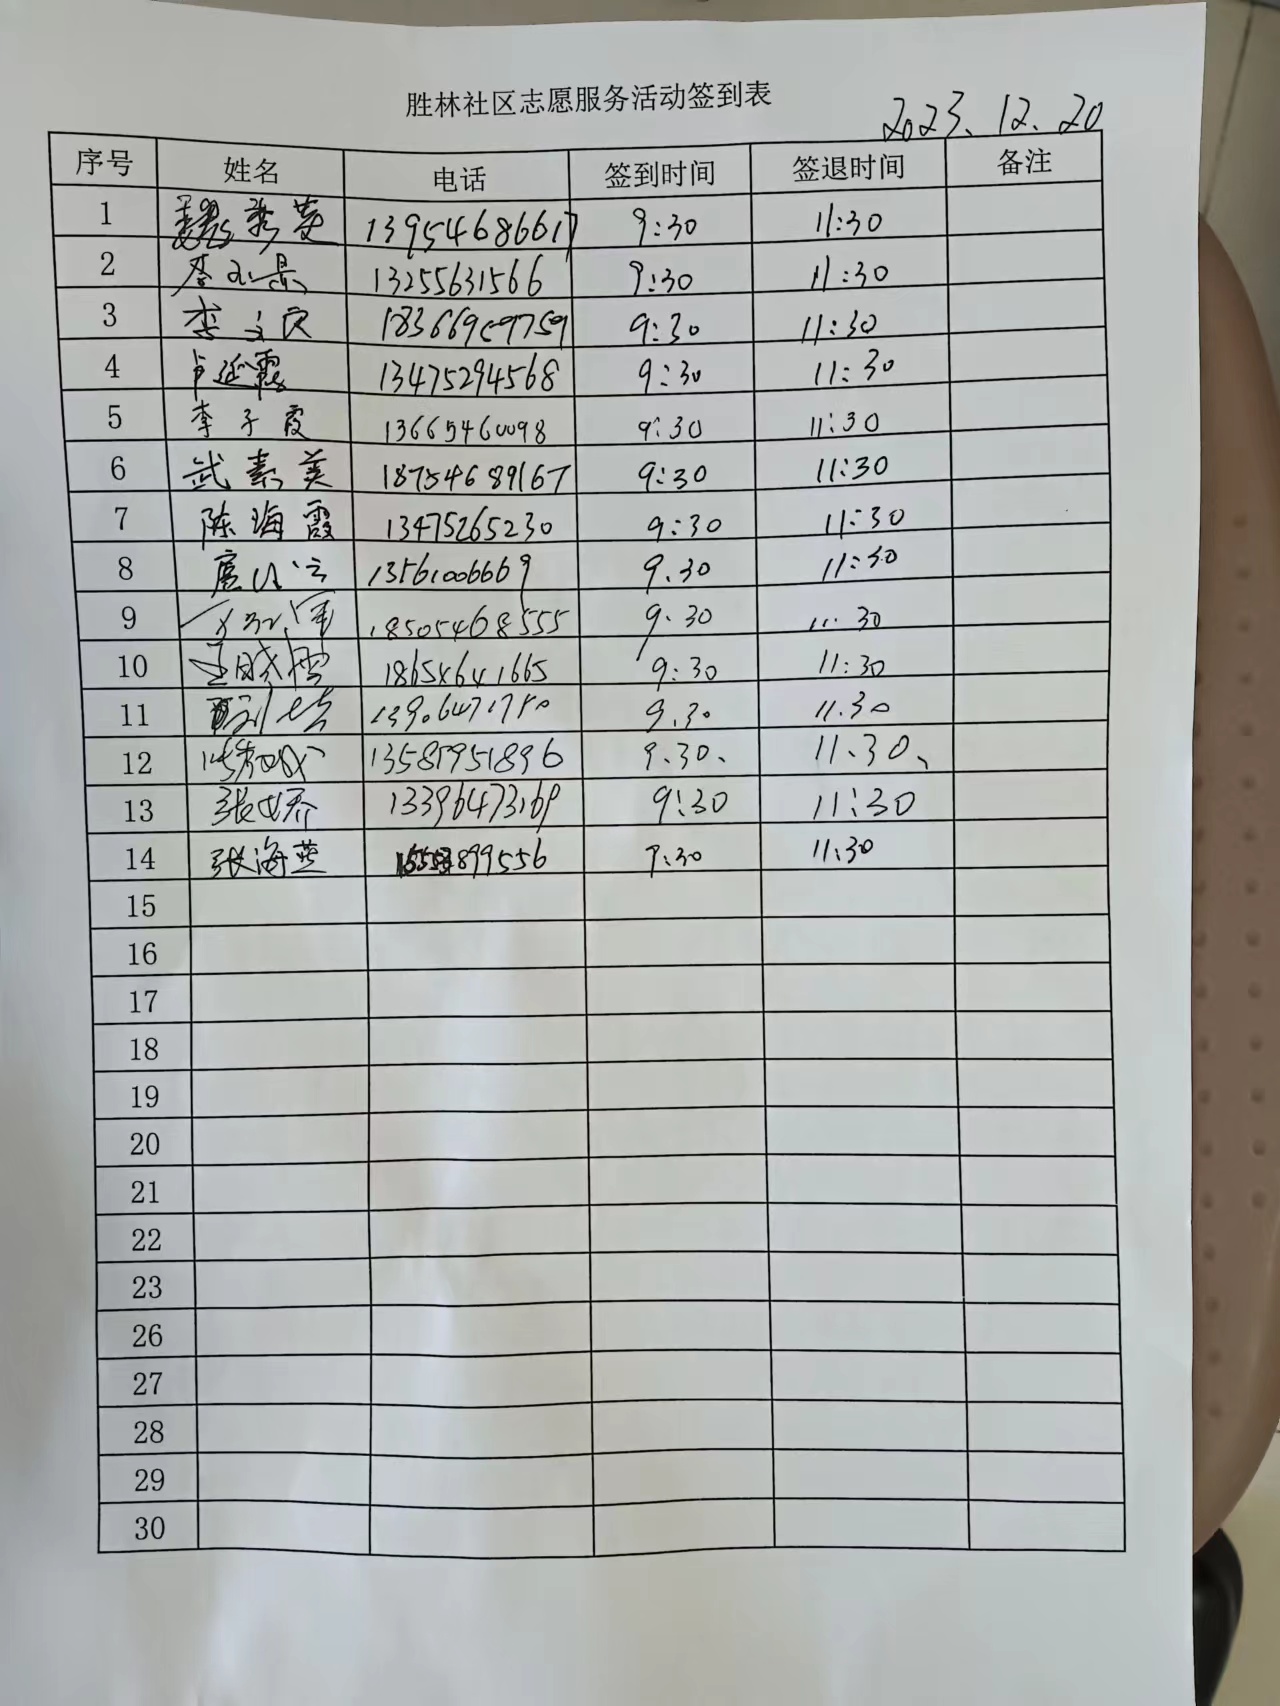 胜林社区志愿服务活动签到表
2023.12.20
序号 姓名 电话 签到时间 签退时间 备注
1 魏秀英 13954686617 9:30 11:30
2 13255631566 9:30 11:30
3 李文良 9:30 11:30
4 卢延霞 13475294568 9:30 11:30
5 李子霞 13665460098 9:30 11:30
6 武素美 18754689167 9:30 11:30
7 陈海霞 13475265230 9:30 11:30
8 13561006669 9.30 11:30
9 18505468555 9.30 11:30
10 王晓雪 18654641665 9:30 11:30
11 9.30 11.30
12 9.30、 11.30、
13 13396473169 9:30 11:30
14 张海燕 9:30 11:30
15
16
17
18
19
20
21
22
23
26
27
28
29
30